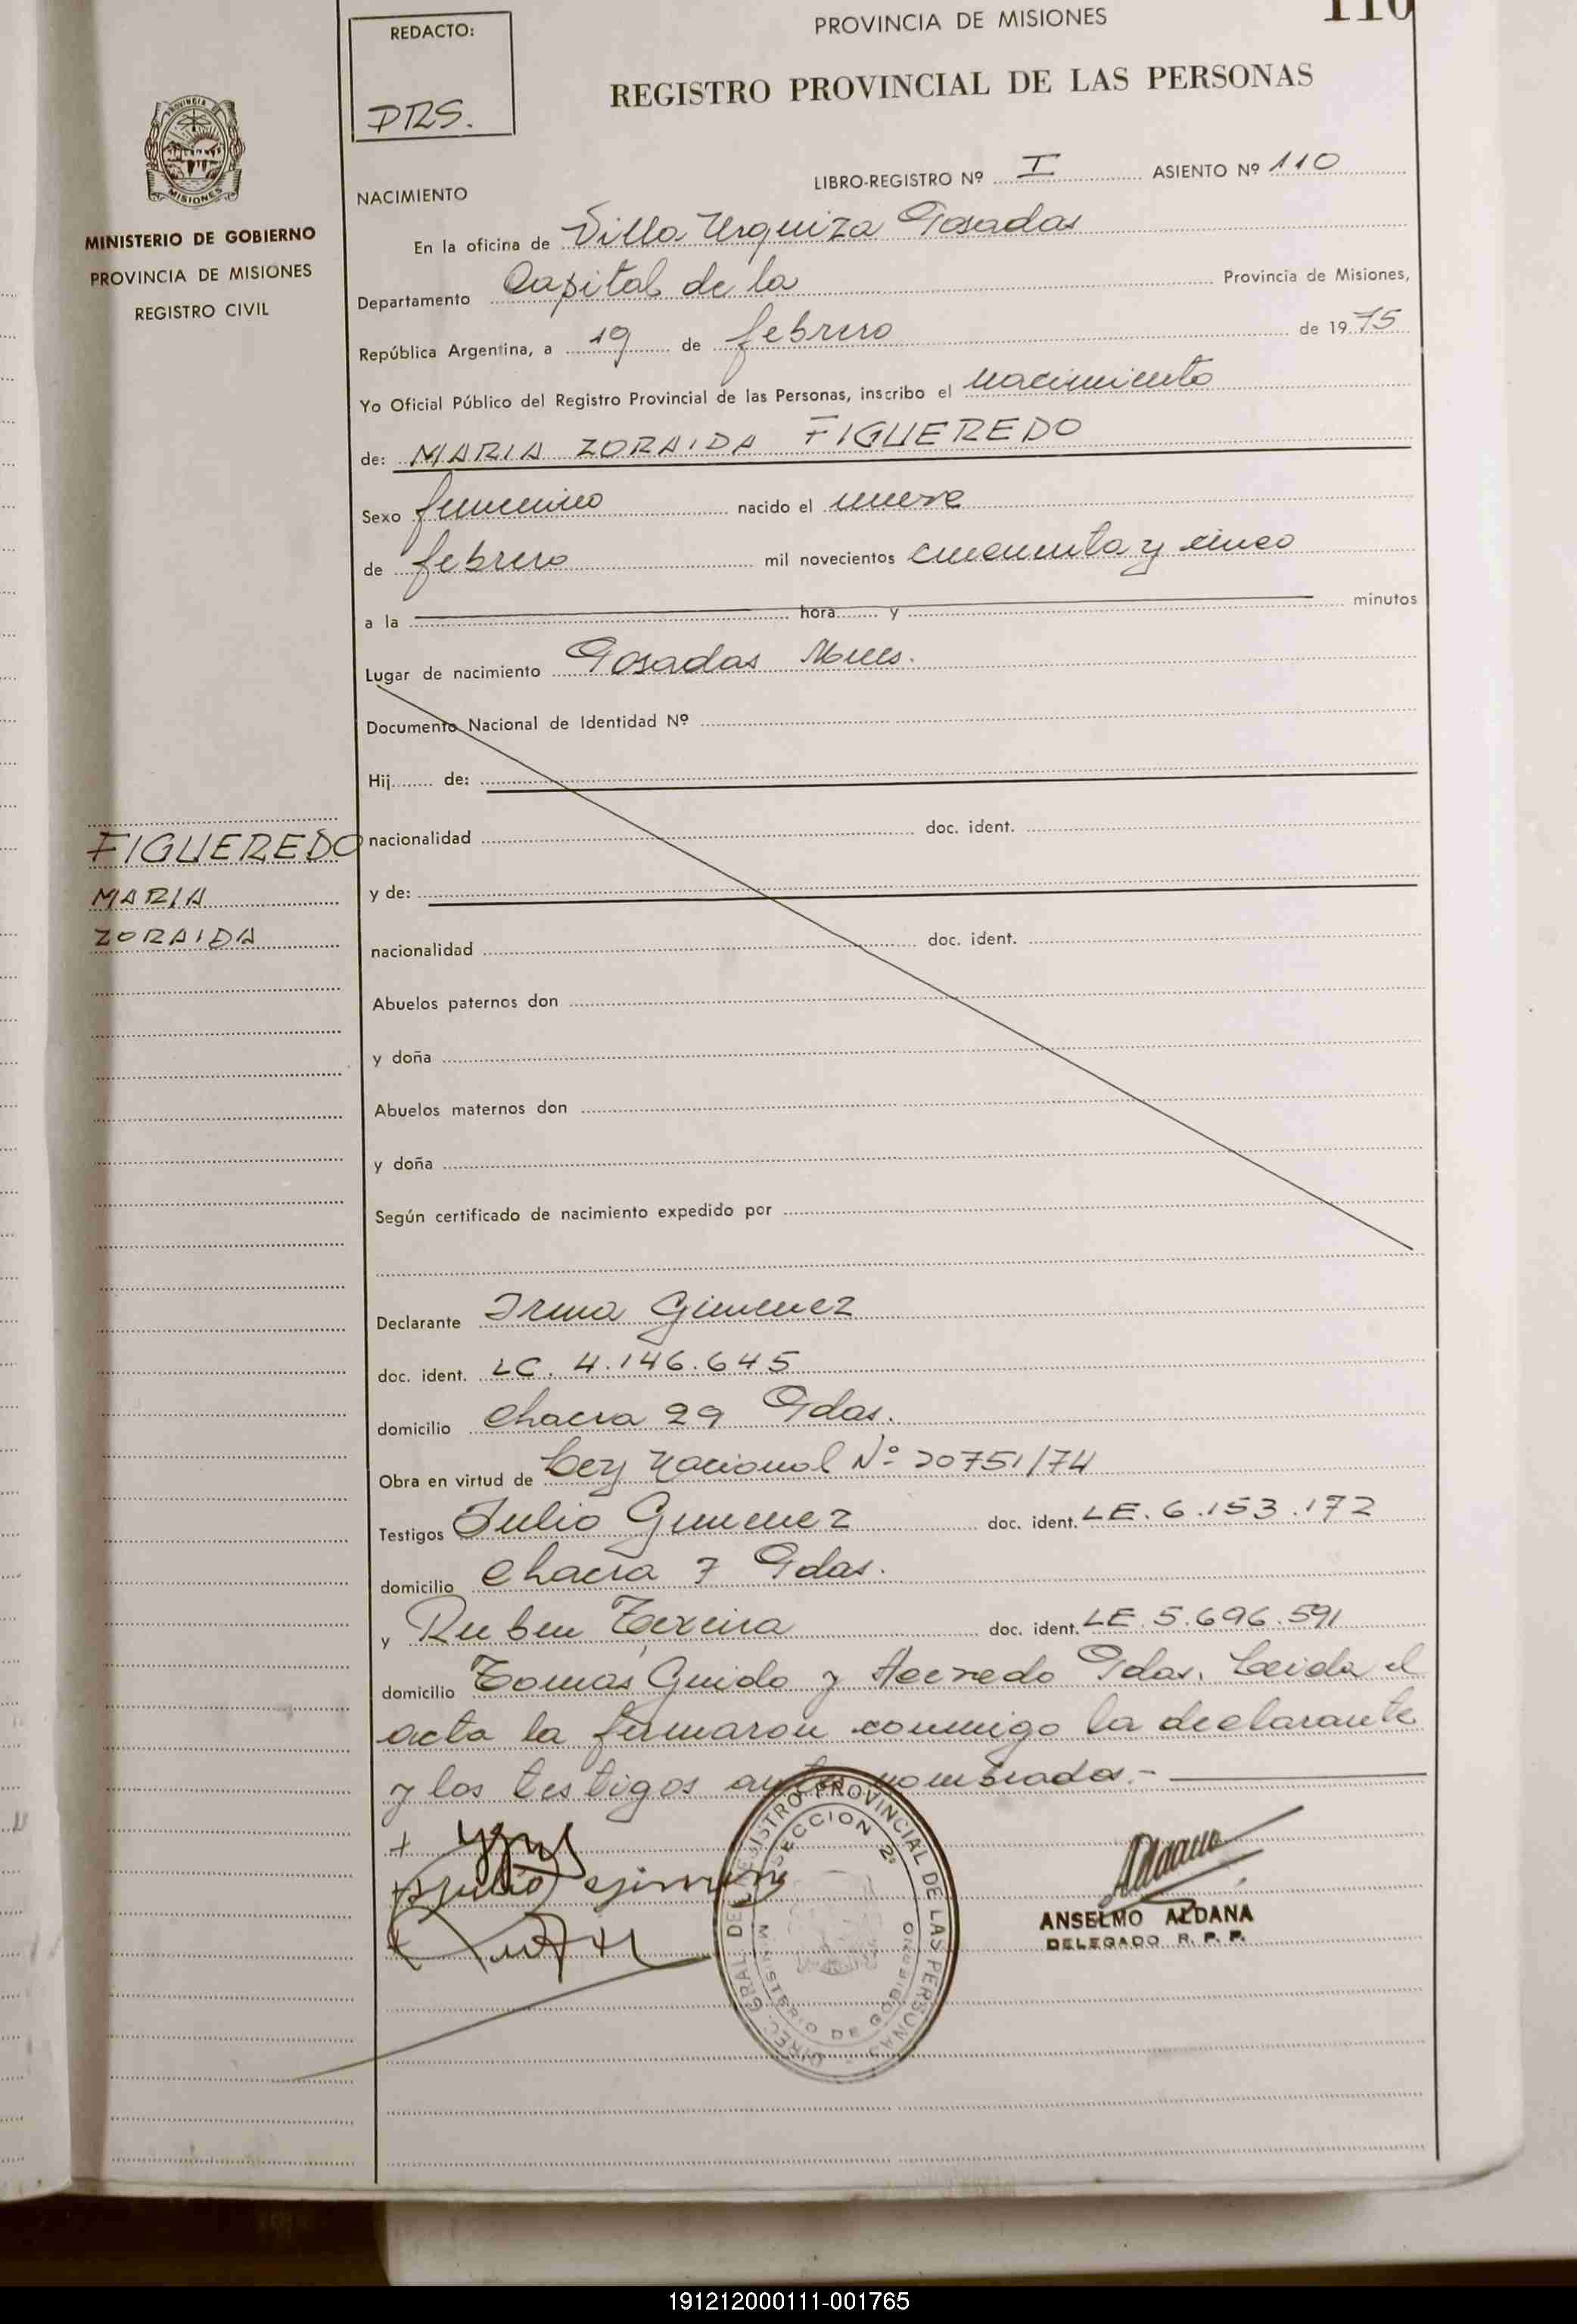 110
REDACTO:
DRS.
PROVINCIA DE MISIONES
REGISTRO PROVINCIAL DE LAS PERSONAS
PROVINCIA DE
MISIONES
MINISTERIO DE GOBIERNO
PROVINCIA DE MISIONES
REGISTRO CIVIL
LIBRO-REGISTRO Nº I ASIENTO Nº 110
NACIMIENTO
En la oficina de Villa Urquiza Posadas
Departamento Capital de la Provincia de Misiones,
República Argentina, a 19 de febrero de 1975
Yo Oficial Público del Registro Provincial de las Personas, inscribo el nacimiento
de: MARIA ZORAIDA FIGUEREDO
Sexo femenino nacido el nueve
de febrero mil novecientos cincuenta y cinco
a la hora y minutos
Lugar de nacimiento Posadas Mnes.
Documento Nacional de Identidad Nº
Hij de:
FIGUEREDO
MARIA
ZORAIDA
nacionalidad doc. ident.
y de:
nacionalidad doc. ident.
Abuelos paternos don
y doña
Abuelos maternos don
y doña
Según certificado de nacimiento expedido por
Declarante Irma Gimenez
doc. ident. LC. 4.146.645
domicilio Chacra 29 Pdas.
Obra en virtud de Ley Nacional Nº 20751/74
Testigos Julio Gimenez doc. ident. LE. 6.153.172
domicilio Chacra 7 Pdas.
y Ruben Texeira doc. ident. LE. 5.696.591
domicilio Tomás Guido y Acevedo Pdas. Leida el
acta la firmaron conmigo la declarante
y los testigos antes nombrados.-
Julio Gimenez
DIREC. GRAL. DEL REGISTRO PROVINCIAL DE LAS PERSONAS
SECCION 2ª
MINISTERIO DE GOBIERNO
ANSELMO ALDANA
DELEGADO R. P. P.
191212000111-001765